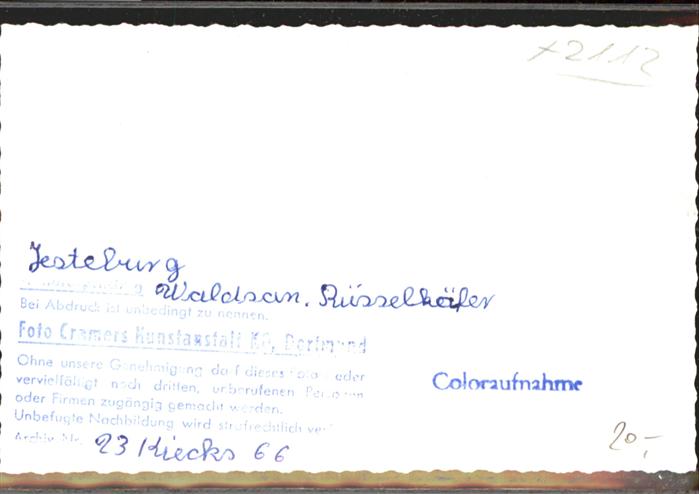 +2112
Jesteburg
Waldsan. Rüsselkäfer
Bei Abdruck ist unbedingt zu nennen.
Foto Cramers Kunstanstalt KG, Dortmund
Ohne unsere Genehmigung darf dieses Foto weder
vervielfältigt noch dritten, unberufenen Personen
oder Firmen zugängig gemacht werden.
Unbefugte Nachbildung wird strafrechtlich
Archiv Nr. 23 Kiecks 66
Coloraufnahme
20,-